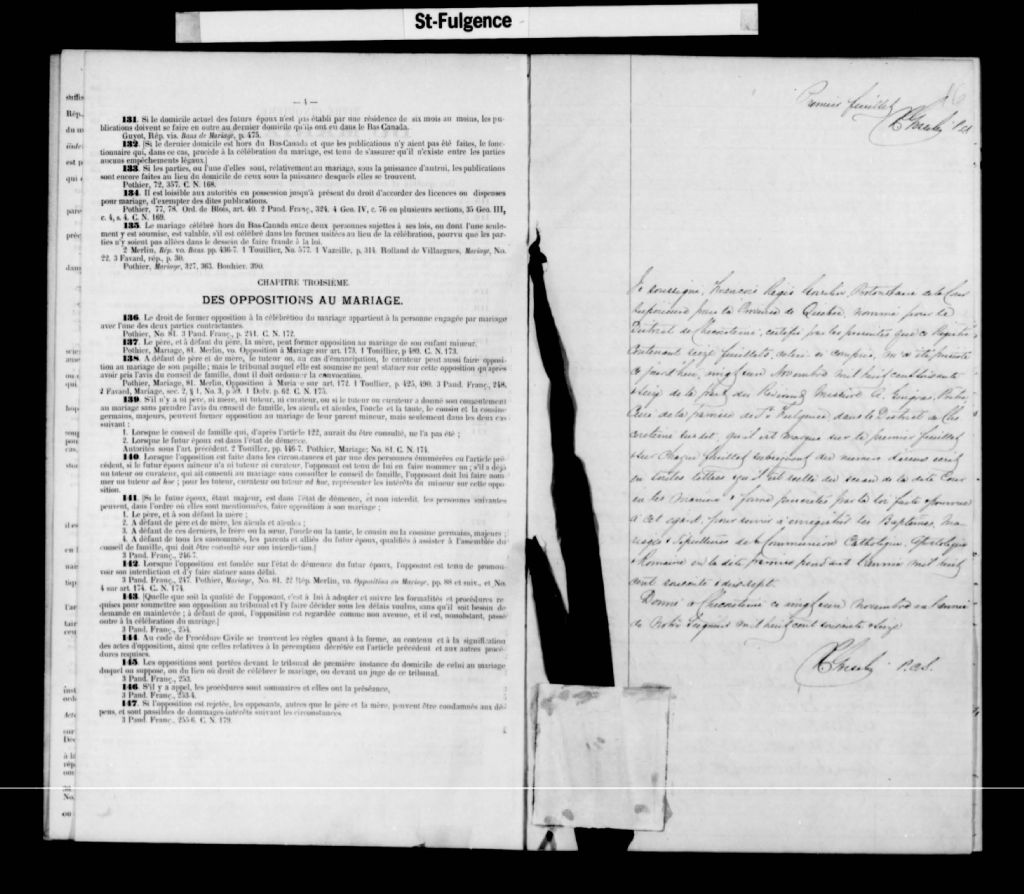 St-Fulgence
— 4 —
131. Si le domicile actuel des futurs époux n'est pas établi par une résidence de six mois au moins, les pu-
blications doivent se faire en outre au dernier domicile qu'ils ont eu dans le Bas-Canada.
Guyot, Rép. vis. Bans de Mariage, p. 475.
132. [Si le dernier domicile est hors du Bas-Canada et que les publications n'y aient pas été faites, le fonc-
tionnaire qui, dans ce cas, procède à la célébration du mariage, est tenu de s'assurer qu'il n'existe entre les parties
aucuns empêchements légaux.]
133. Si les parties, ou l'une d'elles sont, relativement au mariage, sous la puissance d'autrui, les publications
sont encore faites au lieu du domicile de ceux sous la puissance desquels elles se trouvent.
Pothier, 72, 357. C. N. 168.
134. Il est loisible aux autorités en possession jusqu'à présent du droit d'accorder des licences ou dispenses
pour mariage, d'exempter des dites publications.
Pothier, 77, 78. Ord. de Blois, art. 40. 2 Pand. Franç., 324. 4 Geo. IV, c. 76 en plusieurs sections, 35 Geo. III,
c. 4, s. 4. C. N. 169.
135. Le mariage célébré hors du Bas-Canada entre deux personnes sujettes à ses lois, ou dont l'une seule-
ment y est soumise, est valable, s'il est célébré dans les formes usitées au lieu de la célébration, pourvu que les par-
ties n'y soient pas allées dans le dessein de faire fraude à la loi.
2 Merlin, Rép. vo. Bans. pp. 436-7. 1 Touillier, No. 577. 1 Vazeille, p. 314. Rolland de Villargues, Mariage, No.
22. 3 Favard, rép., p. 30.
Pothier, Mariage, 327, 363. Bouhier. 390.
CHAPITRE TROISIÈME.
DES OPPOSITIONS AU MARIAGE.
136. Le droit de former opposition à la célébration du mariage appartient à la personne engagée par mariage
avec l'une des deux parties contractantes.
Pothier, No. 81. 3 Pand. Franç., p. 241. C. N. 172.
137. Le père, et à défaut du père, la mère, peut former opposition au mariage de son enfant mineur.
Pothier, Mariage, 81. Merlin, vo. Opposition à Mariage sur art. 173. 1 Touillier, p. 489. C. N. 173.
138. A défaut de père et de mère, le tuteur ou, au cas d'émancipation, le curateur peut aussi faire opposi-
tion au mariage de son pupille; mais le tribunal auquel elle est soumise ne peut statuer sur cette opposition qu'a-
après avoir pris l'avis du conseil de famille, dont il doit ordonner la convocation.
Pothier, Mariage, 81. Merlin, Opposition à Mariage sur art. 172. 1 Toullier, p. 425, 490. 3 Pand. Franç., 248,
2 Favard, Mariage, sec. 2, § 1, No. 3, p. 59. 1 Delv. p. 62. C. N. 175.
139. S'il n'y a ni père, ni mère, ni tuteur, ni curateur, ou si le tuteur ou curateur a donné son consentement
au mariage sans prendre l'avis du conseil de famille, les aïeuls et aïeules, l'oncle et la tante, le cousin et la cousine
germains, majeurs, peuvent former opposition au mariage de leur parent mineur, mais seulement dans les deux cas
suivant :
1. Lorsque le conseil de famille qui, d'après l'article 122, aurait du être consulté, ne l'a pas été ;
2. Lorsque le futur époux est dans l'état de démence.
Autorités sous l'art. précédent. 2 Tomiller, pp. 446-7. Pothier, Mariage; No. 81. C. N. 174.
140. Lorsque l'opposition est faite dans les circonstances et par une des personnes énumérées en l'article pré-
cédent, si le futur époux mineur n'a ni tuteur ni curateur, l'opposant est tenu de lui en faire nommer un ; s'il a déjà
un tuteur ou curateur, qui ait consenti au mariage sans consulter le conseil de famille, l'opposant doit lui faire nom-
mer un tuteur ad hoc ; pour les tuteur, curateur ou tuteur ad hoc, représenter les intérêts du mineur sur cette oppo-
sition.
141. [Si le futur époux, étant majeur, est dans l'état de démence, et non interdit, les personnes suivantes
peuvent, dans l'ordre où elles sont mentionnées, faire opposition à son mariage :
1. Le père, et à son défaut la mère ;
2. A défaut de père et de mère, les aïeuls et aïeules ;
3. A défaut de ces derniers, le frère ou la sœur, l'oncle ou la tante, le cousin ou la cousine germains, majeurs ;
4. A défaut de tous les susnommés, les parents et alliés du futur époux, qualifiés à assister à l'assemblée du
conseil de famille, qui doit être consulté sur son interdiction.]
3 Pand. Franç., 246-7.
142. Lorsque l'opposition est fondée sur l'état de démence du futur époux, l'opposant est tenu de promou-
voir son interdiction et d'y faire statuer sans délai.
3 Pand. Franç., 247. Pothier, Mariage, No. 81. 22 Rép. Merlin, vo. Opposition au Mariage, pp. 88 et suiv., et No.
4 sur art. 174. C. N. 174.
143. [Quelle que soit la qualité de l'opposant, c'est à lui à adopter et suivre les formalités et procédures re-
quises pour soumettre son opposition au tribunal et l'y faire décider sous les délais voulus, sans qu'il soit besoin de
demande en mainlevée ; à défaut de quoi, l'opposition est regardée comme non avenue, et il est, nonobstant, passé
outre à la célébration du mariage.]
3 Pand. Franç., 254.
144. Au code de Procédure Civile se trouvent les règles quant à la forme, au contenu et à la signification
des actes d'opposition, ainsi que celles relatives à la péremption décrétée en l'article précédent et aux autres procé-
dures requises.
145. Les oppositions sont portées devant le tribunal de première instance du domicile de celui au mariage
duquel on suppose, ou du lieu où droit de célébrer le mariage, ou devant un juge de ce tribunal.
3 Pand. Franç., 253.
146. S'il y a appel, les procédures sont sommaires et elles ont la préséance,
3 Pand. Franç., 253-4.
147. Si l'opposition est rejetée, les opposants, autres que le père et la mère, peuvent être condamnés aux dé-
pens, et sont passibles de dommages-intérêts suivant les circonstances.
3 Pand. Franç., 255-6. C. N. 179.
Premier feuillet
Je soussigné, Francois Régis Gosselin, Protonotaire de la Cour
Supérieure pour la Province de Québec, nommé pour le
District de Chicoutimi, certifie par les présentes que ce Registre
contenant seize feuillets, celui-ci compris, m'a été présenté
ce jourd'hui, vingt un Novembre mil huit cent soixante
& seize de la part du Révérend Messire A. Gingras, Prêtre
Curé de la paroisse de St Fulgence dans le District de Chi-
coutimi susdit, qu'il est marqué sur le premier feuillet
& sur chaque feuillet subséquent du numéro d'icelui écrit
en toutes lettres, qu'il est scellé du sceau de la dite Cour
en la manière & forme prescrites par la loi faite & pourvue
à cet égard, pour servir à enregistrer les Baptêmes, Ma-
riages & Sépultures de la Communion Catholique, Apostolique
& Romaine en la dite paroisse pendant l'année mil huit
cent soixante & dix sept.
Donné à Chicoutimi ce vingt un novembre en l'année
de Notre Seigneur mil huit cent soixante & seize
P.C.S.